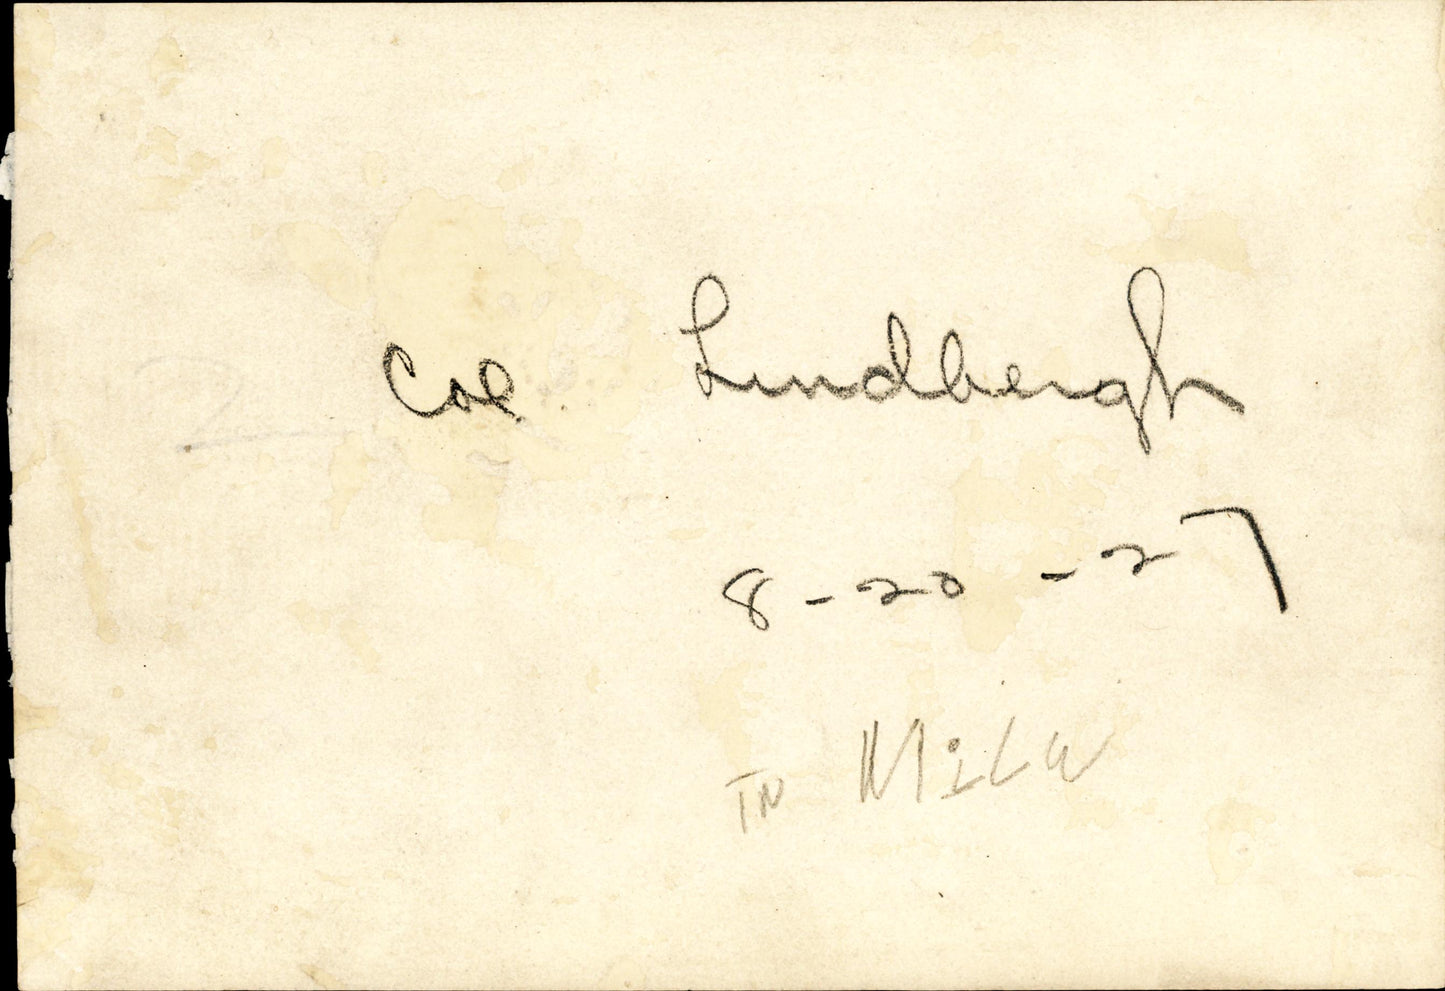 Col Lindbergh
8-20-27
IN MiLW